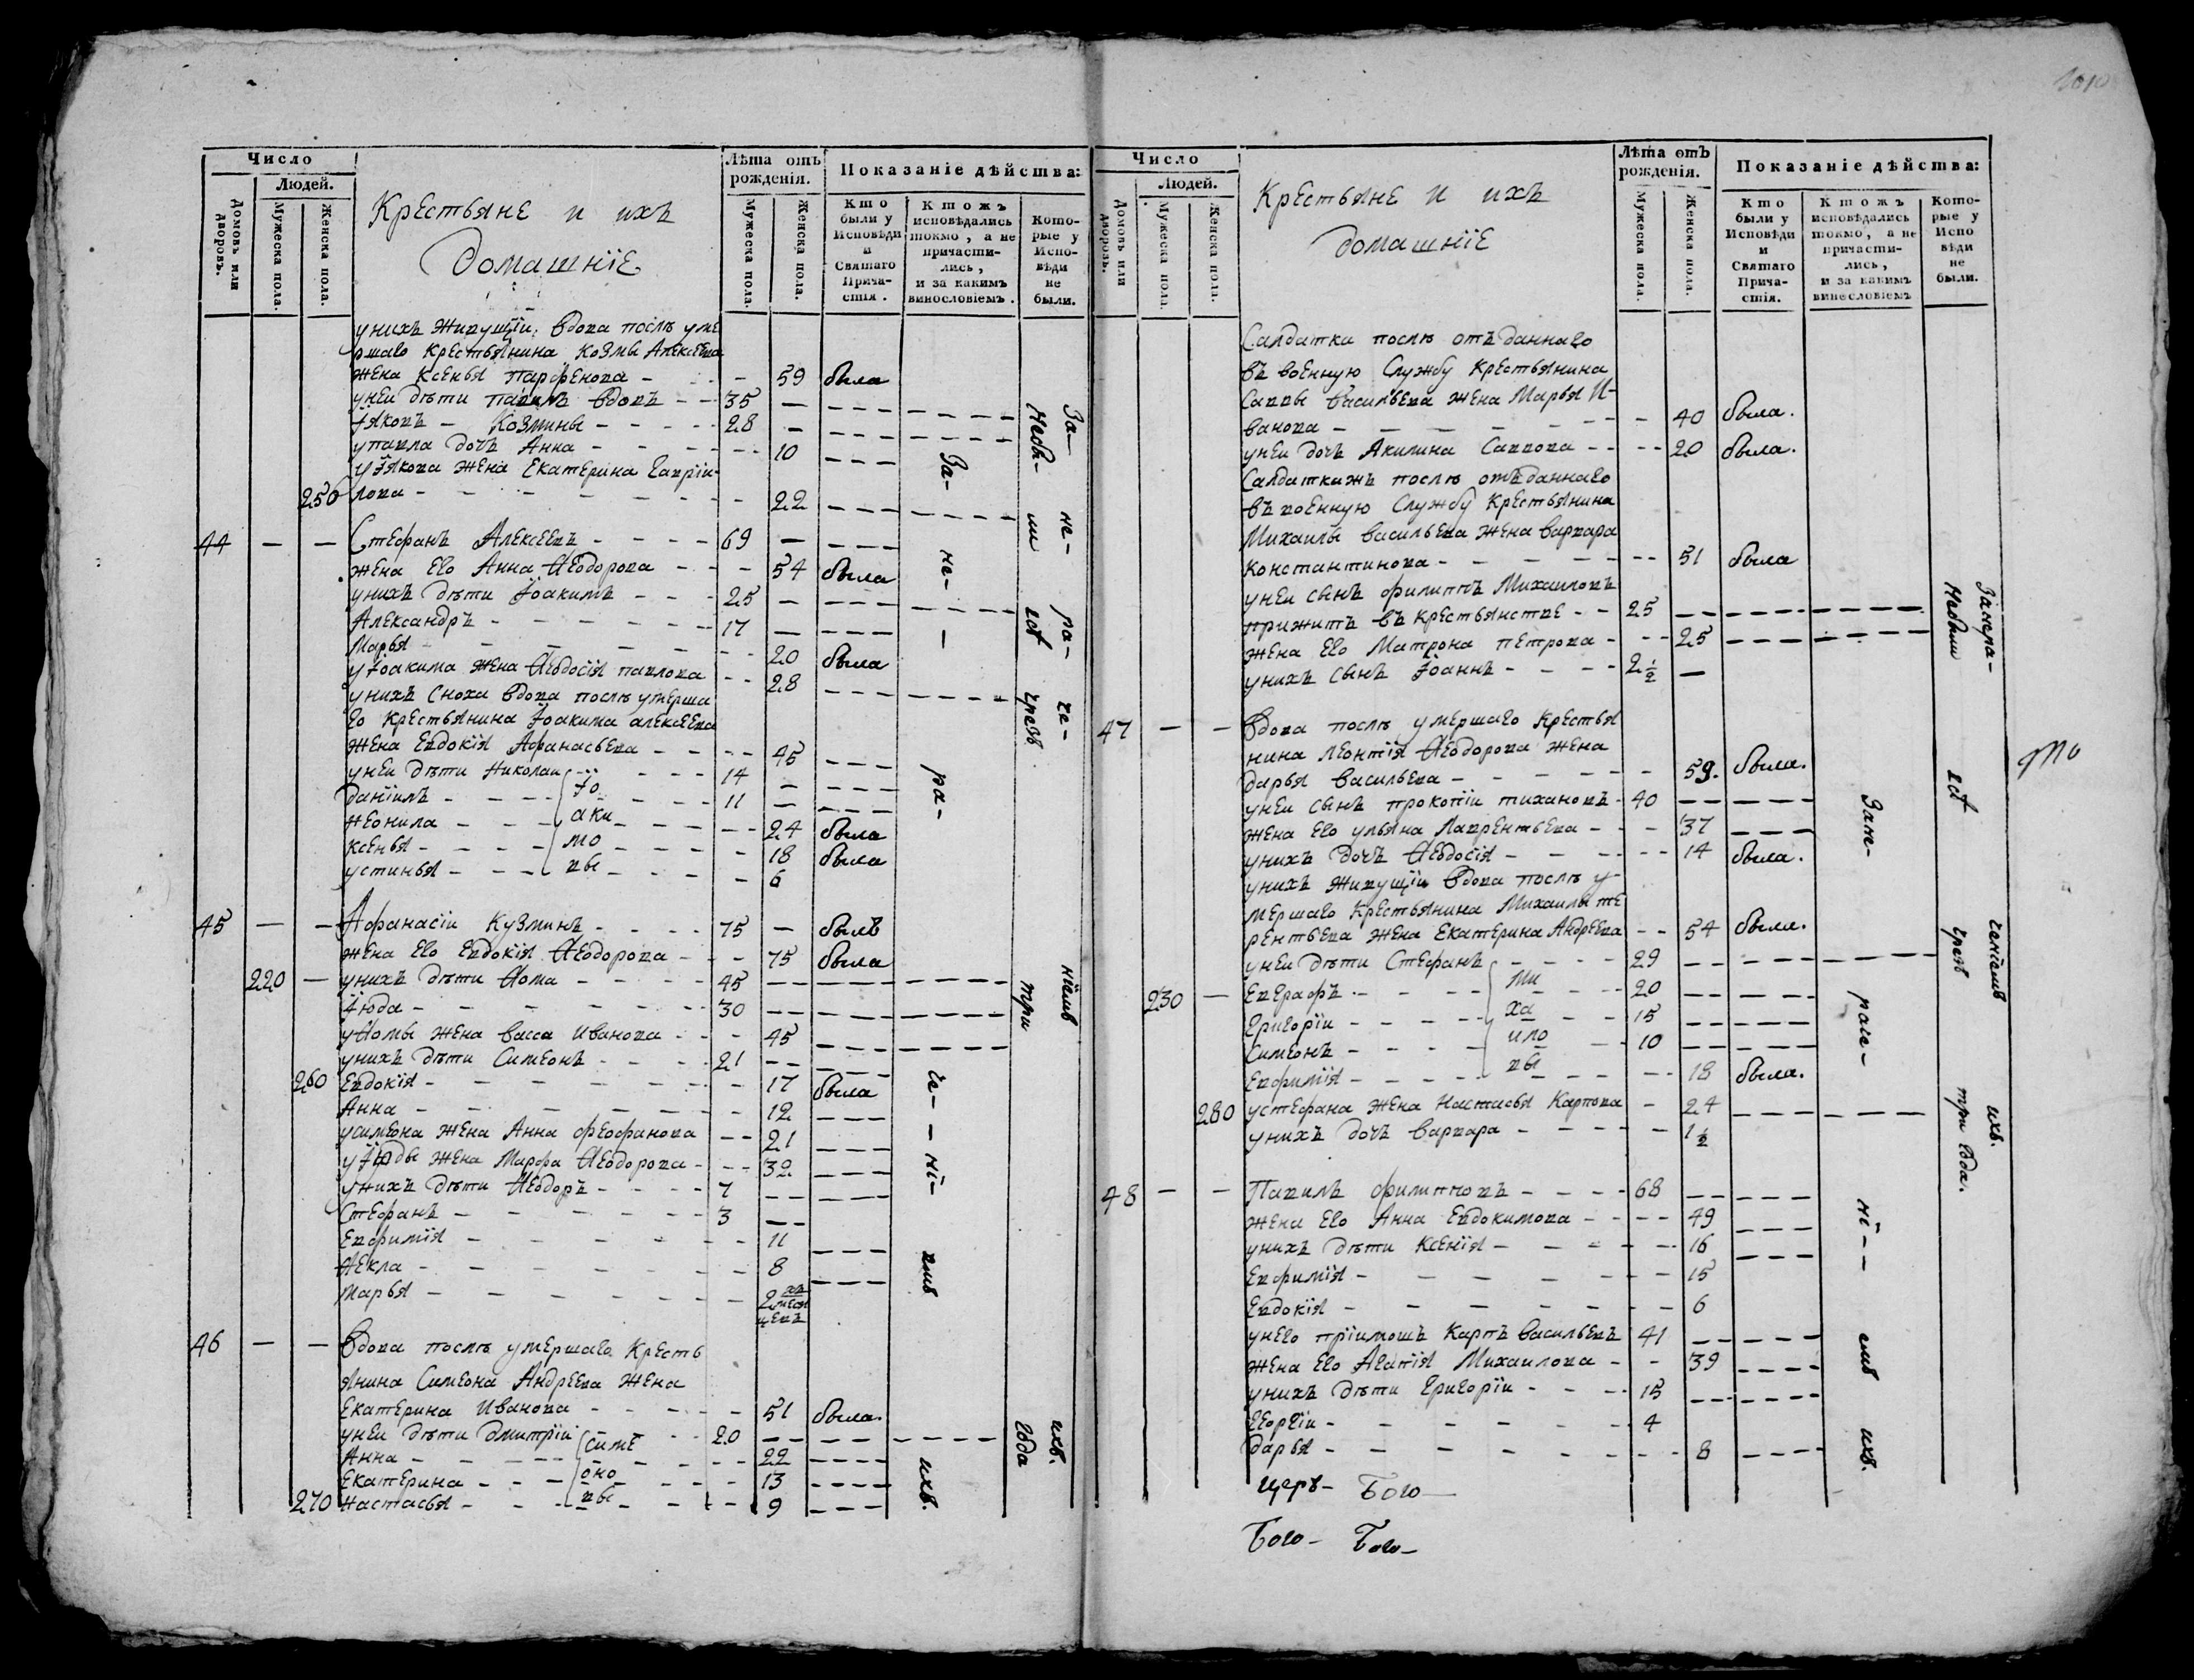 1010
Число
Людей.
Домовъ или дворовъ.
Мужеска пола.
Женска пола.
Крестьяне и ихъ
домашніе
Лѣта отъ рожденія.
Мужеска пола.
Женска пола.
Показаніе дѣйства:
Кто были у Исповѣди и Святаго Прича-стія.
Ктожъ исповѣдались токмо, а не причасти-лись, и за какимъ винословіемъ.
Кото-рые у Испо-вѣди не были.
унихъ живущіи вдова послѣ уме
ршаго крестьянина Козмы Алексеева
жена Ксенья Парфенова - - 59 была
унеи дѣти Павилъ вдовъ - - 35 -
Іяковъ - Козмины - - 28 -
упавла дочь Анна - - 10
уІякова жена Екатерина Гаврии-
250 лова - - 22
44 - - Стефанъ Алексеевъ - - 69 -
жена его Анна Ѳеодорова - - 54 была
унихъ дѣти Іоакимъ - - 25 -
Александръ - - 17 -
Марья - - 20 была
уІоакима жена Ѳеодосія павлова - - 28
унихъ сноха вдова послѣ умерша
го крестьянина Іоакима алексеева
жена Евдокія Афанасьева - - 45
унеи дѣти Николаи - - 14 -
Даніилъ - Іо - 11 -
Неонила - аки - 24 была
Ксенья - мо - 18 была
устинья - вы - 6
45 - - Афанасіи Кузминъ - - 75 - былъ
жена его Евдокія Ѳеодорова - - 75 была
220 - унихъ дѣти Ѳома - - 45 -
Іюда - - 30 -
уѲомы жена Васса Иванова - - 45
унихъ дѣти Симеонъ - - 21 -
260 Евдокія - - 17 была
Анна - - 12
усимеона жена Анна Феофанова - - 21
уІюды жена Марфа Ѳеодорова - - 32
унихъ дѣти Ѳеодоръ - - 7 -
Стефанъ - - 3 -
Евфимія - - 11
Ѳекла - - 8
Марья - - 2 меся
цевъ
46 - - Вдова послѣ умершаго кресть
янина Симеона Андреева жена
Екатерина Иванова - - 51 была.
унеи дѣти Дмитріи - - 20 -
Анна - симе - 22
Екатерина - оно - 13
270 Настасья - вы - 9
За- не- ра- че- ніемъ ихъ.
За- не- ра- че- ні- емъ ихъ.
Небы- ли еств чрезъ три года
Число
Людей.
Домовъ или дворовъ.
Мужеска пола.
Женска пола.
Крестьяне и ихъ
домашніе
Лѣта отъ рожденія.
Мужеска пола.
Женска пола.
Показаніе дѣйства:
Кто были у Исповѣди и Святаго Прича-стія.
Ктожъ исповѣдались токмо, а не причасти-лись, и за какимъ винословіемъ
Кото-рые у Испо вѣди не были.
Салдатки послѣ отъданнаго
въ военную службу крестьянина
Саввы Васильева жена Марья И-
ванова - - 40 была.
унеи дочь Акилина Саввова - - 20 была.
Салдаткижъ послѣ отъданнаго
въ военную службу крестьянина
Михаилы Васильева жена Варвара
Константинова - - 51 была
унеи сынъ Филиппъ Михаиловъ
прижитъ въ крестьянстве - - 25 -
жена его Матрона Петрова - - 25
унихъ сынъ Іоаннъ - - 2½ -
47 - - Вдова послѣ умершаго крестья
нина Леонтія Ѳеодорова жена
Дарья Васильева - - 59. была.
унеи сынъ Прокопіи тихановъ - 40 -
жена его ульяна Лаврентьева - - 37
унихъ дочь Ѳеодосія - - 14 была.
унихъ живущіи вдова послѣ у-
мершаго крестьянина Михаилы те
рентьева жена Екатерина Андреева - - 54 была.
унеи дѣти Стефанъ - - 29 -
230 - Евграфъ - Ми - 20 -
Григоріи - ха - 15 -
Симеонъ - ило - 10 -
Евфимія - вы - 18 была.
280 устефана жена Настасья Карпова - 24
унихъ дочь Варвара - - 1½
48 - - Павилъ Филипповъ - - 68 -
жена его Анна Евдокимова - - 49
унихъ дѣти Ксенія - - 16
Евфимія - - 15
Евдокія - - 6
унего пріимошъ Карпъ Васильевъ 41 -
жена его Агапія Михаилова - - 39
унихъ дѣти Григоріи - - 15 -
Георгіи - - 4
Дарья - - 8
Зане- раче- ні- емъ ихъ.
Занера- ченіемъ ихъ.
Небыли еств чрезъ три года.
церк- Бого-
Бого- Бого-